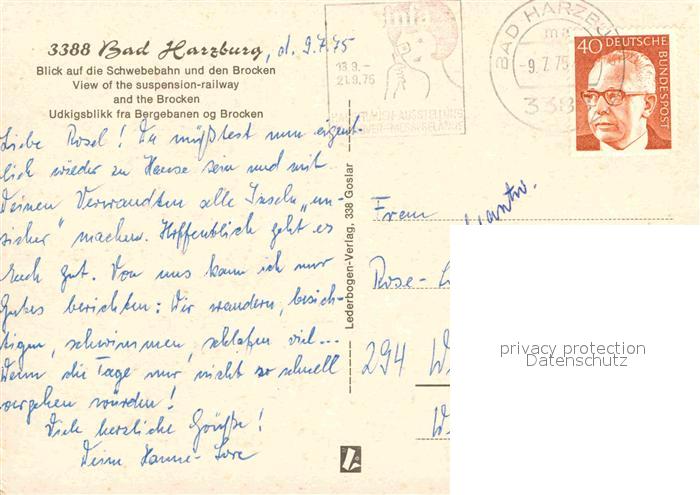 3388 Bad Harzburg, d. 9.7.75
Blick auf die Schwebebahn und den Brocken
View of the suspension-railway
and the Brocken
Udkigsblikk fra Bergebanen og Brocken
Liebe Rosel! Du müßtest nun eigent-
lich wieder zu Hause sein und mit
Deinen Verwandten alle Inseln „un-
sicher" machen. Hoffentlich geht es
Euch gut. Von uns kann ich nur
Gutes berichten: Wir wandern, besich-
tigen, schwimmen, schlafen viel...
Wenn die Tage nur nicht so schnell
vergehen würden!
Viele herzliche Grüße!
Deine Hanne-Lore
Lederbogen-Verlag, 338 Goslar
infa
13.9.-
21.9.75
BAD HARZBU
-9.7.75
338
40 DEUTSCHE
BUNDESPOST
Frau
Rose-L
294 W
W
privacy protection
Datenschutz